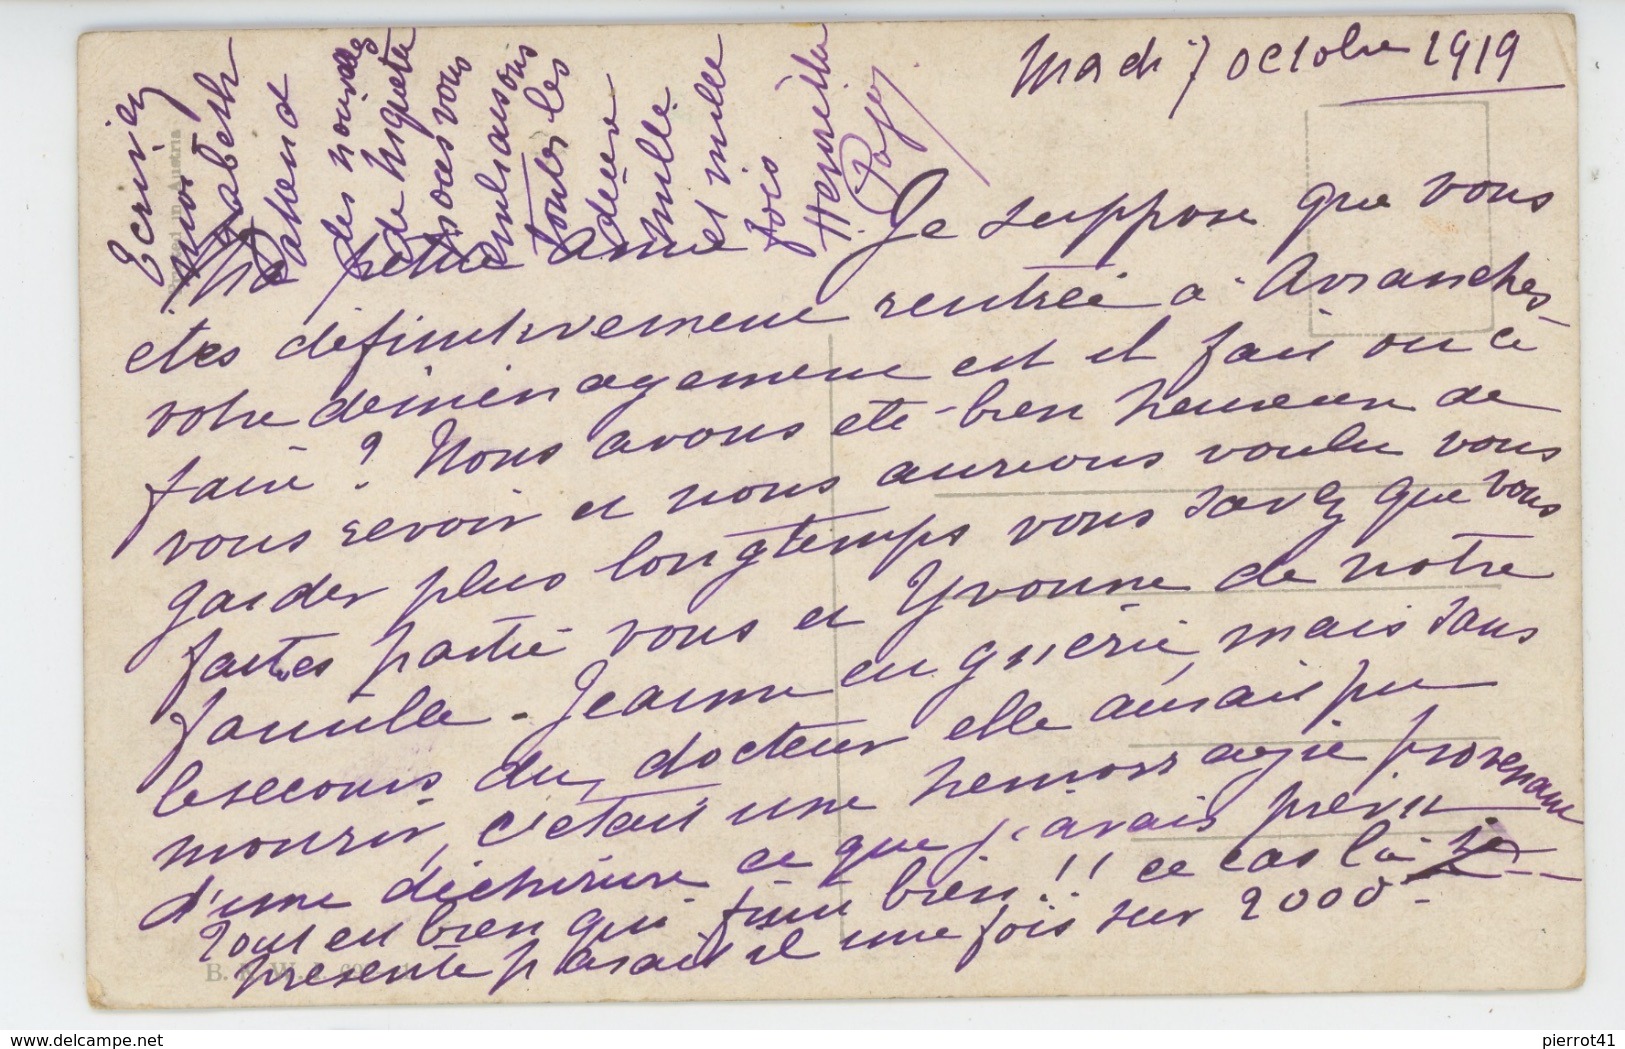 Mardi 7 octobre 1919
Ma petite amie Je suppose que vous
etes définitivement rentrée à Avranches
votre déménagement est il fait ou à
faire ? Nous avons été bien heureux de
vous revoir et nous aurions voulu vous
garder plus longtemps vous savez que vous
faites partie vous et Yvonne de notre
famille - Jeanne est guérie, mais sans
le secours du docteur elle aurait pu
mourir, c'était une hemorragie provenant
d'une déchirure ce que j'avais prévu
Tout est bien qui finit bien !! ce cas là se
présente parait il une fois sur 2000 -
Ecrivez
nous
des nouvelles
vous
embrassons
toutes les
deux
mille
et mille
fois
Henriette
Printed in Austria
B. K. W. I.
pierrot41
delcampe.net